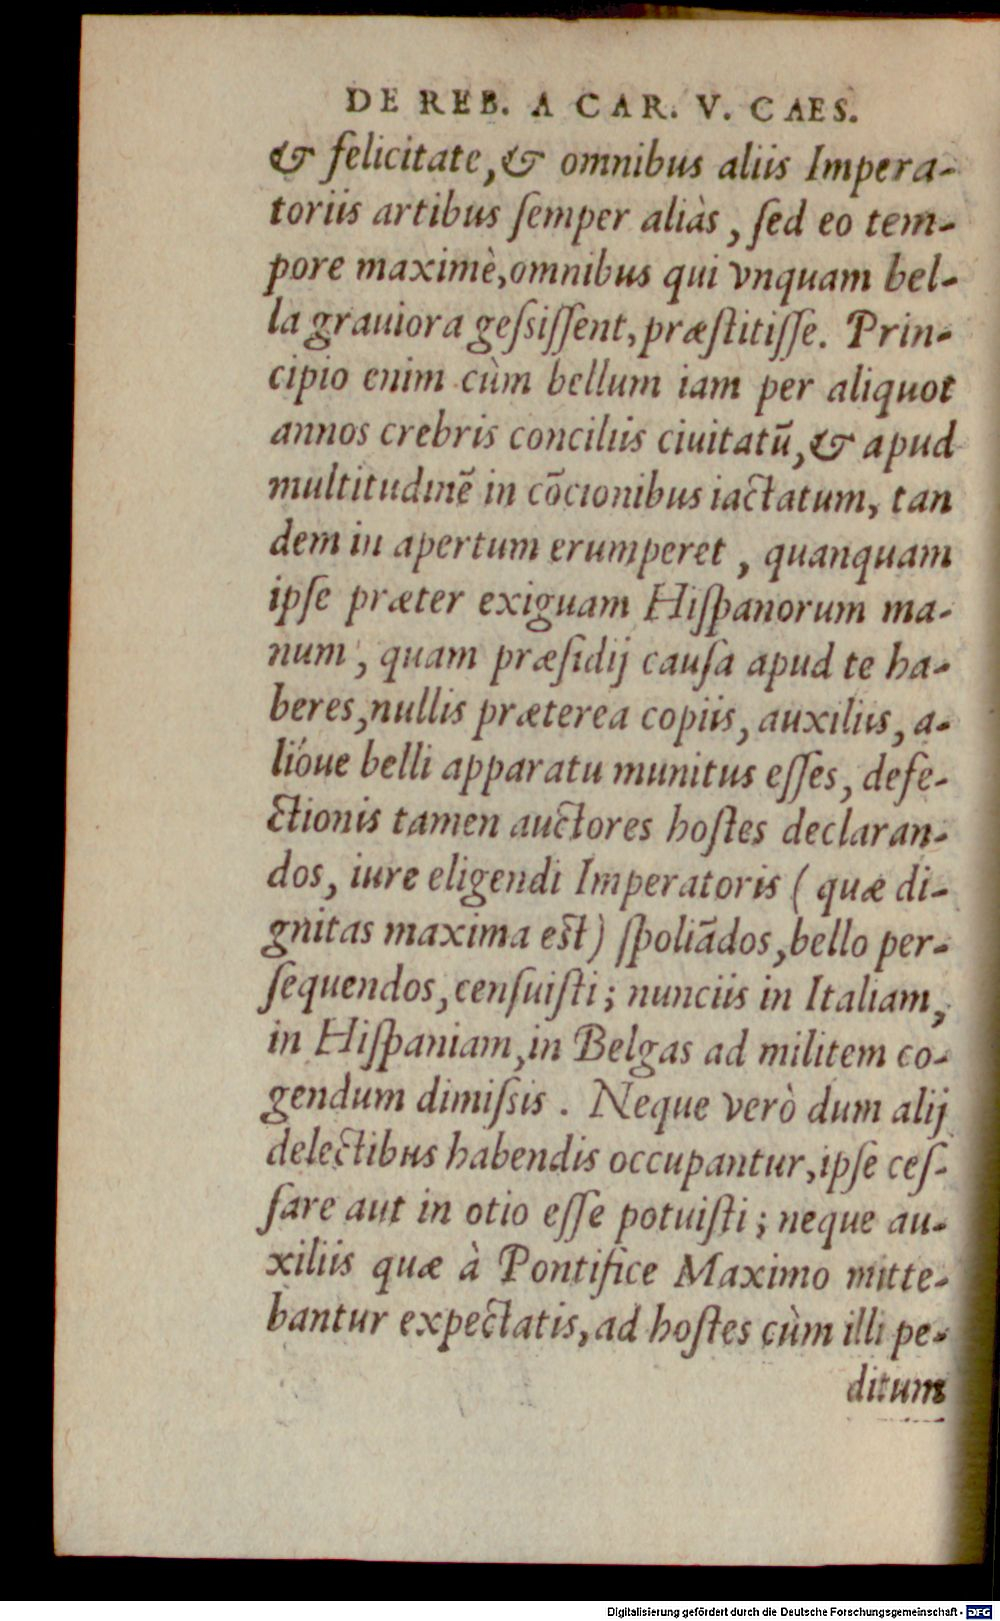 DE REB. A CAR. V. CAES.
& felicitate, & omnibus aliis Impera-
toriis artibus ſemper aliàs, ſed eo tem-
pore maximè, omnibus qui vnquam bel-
la grauiora geſsiſſent, præſtitiſſe. Prin-
cipio enim cùm bellum iam per aliquot
annos crebris conciliis ciuitatū, & apud
multitudinē in cōcionibus iactatum, tan
dem in apertum erumperet, quanquam
ipſe præter exiguam Hiſpanorum ma-
num, quam præſidij cauſa apud te ha-
beres, nullis præterea copiis, auxiliis, a-
lióue belli apparatu munitus eſſes, defe-
ctionis tamen auctores hoſtes declaran-
dos, iure eligendi Imperatoris (quæ di-
gnitas maxima est) ſpoliādos, bello per-
ſequendos, cenſuiſti; nunciis in Italiam,
in Hiſpaniam, in Belgas ad militem co-
gendum dimiſsis. Neque verò dum alij
delectibus habendis occupantur, ipſe ceſ-
ſare aut in otio eſſe potuiſti; neque au-
xiliis quæ à Pontifice Maximo mitte-
bantur expectatis, ad hoſtes cùm illi pe-
ditum
Digitalisierung gefördert durch die Deutsche Forschungsgemeinschaft - DFG